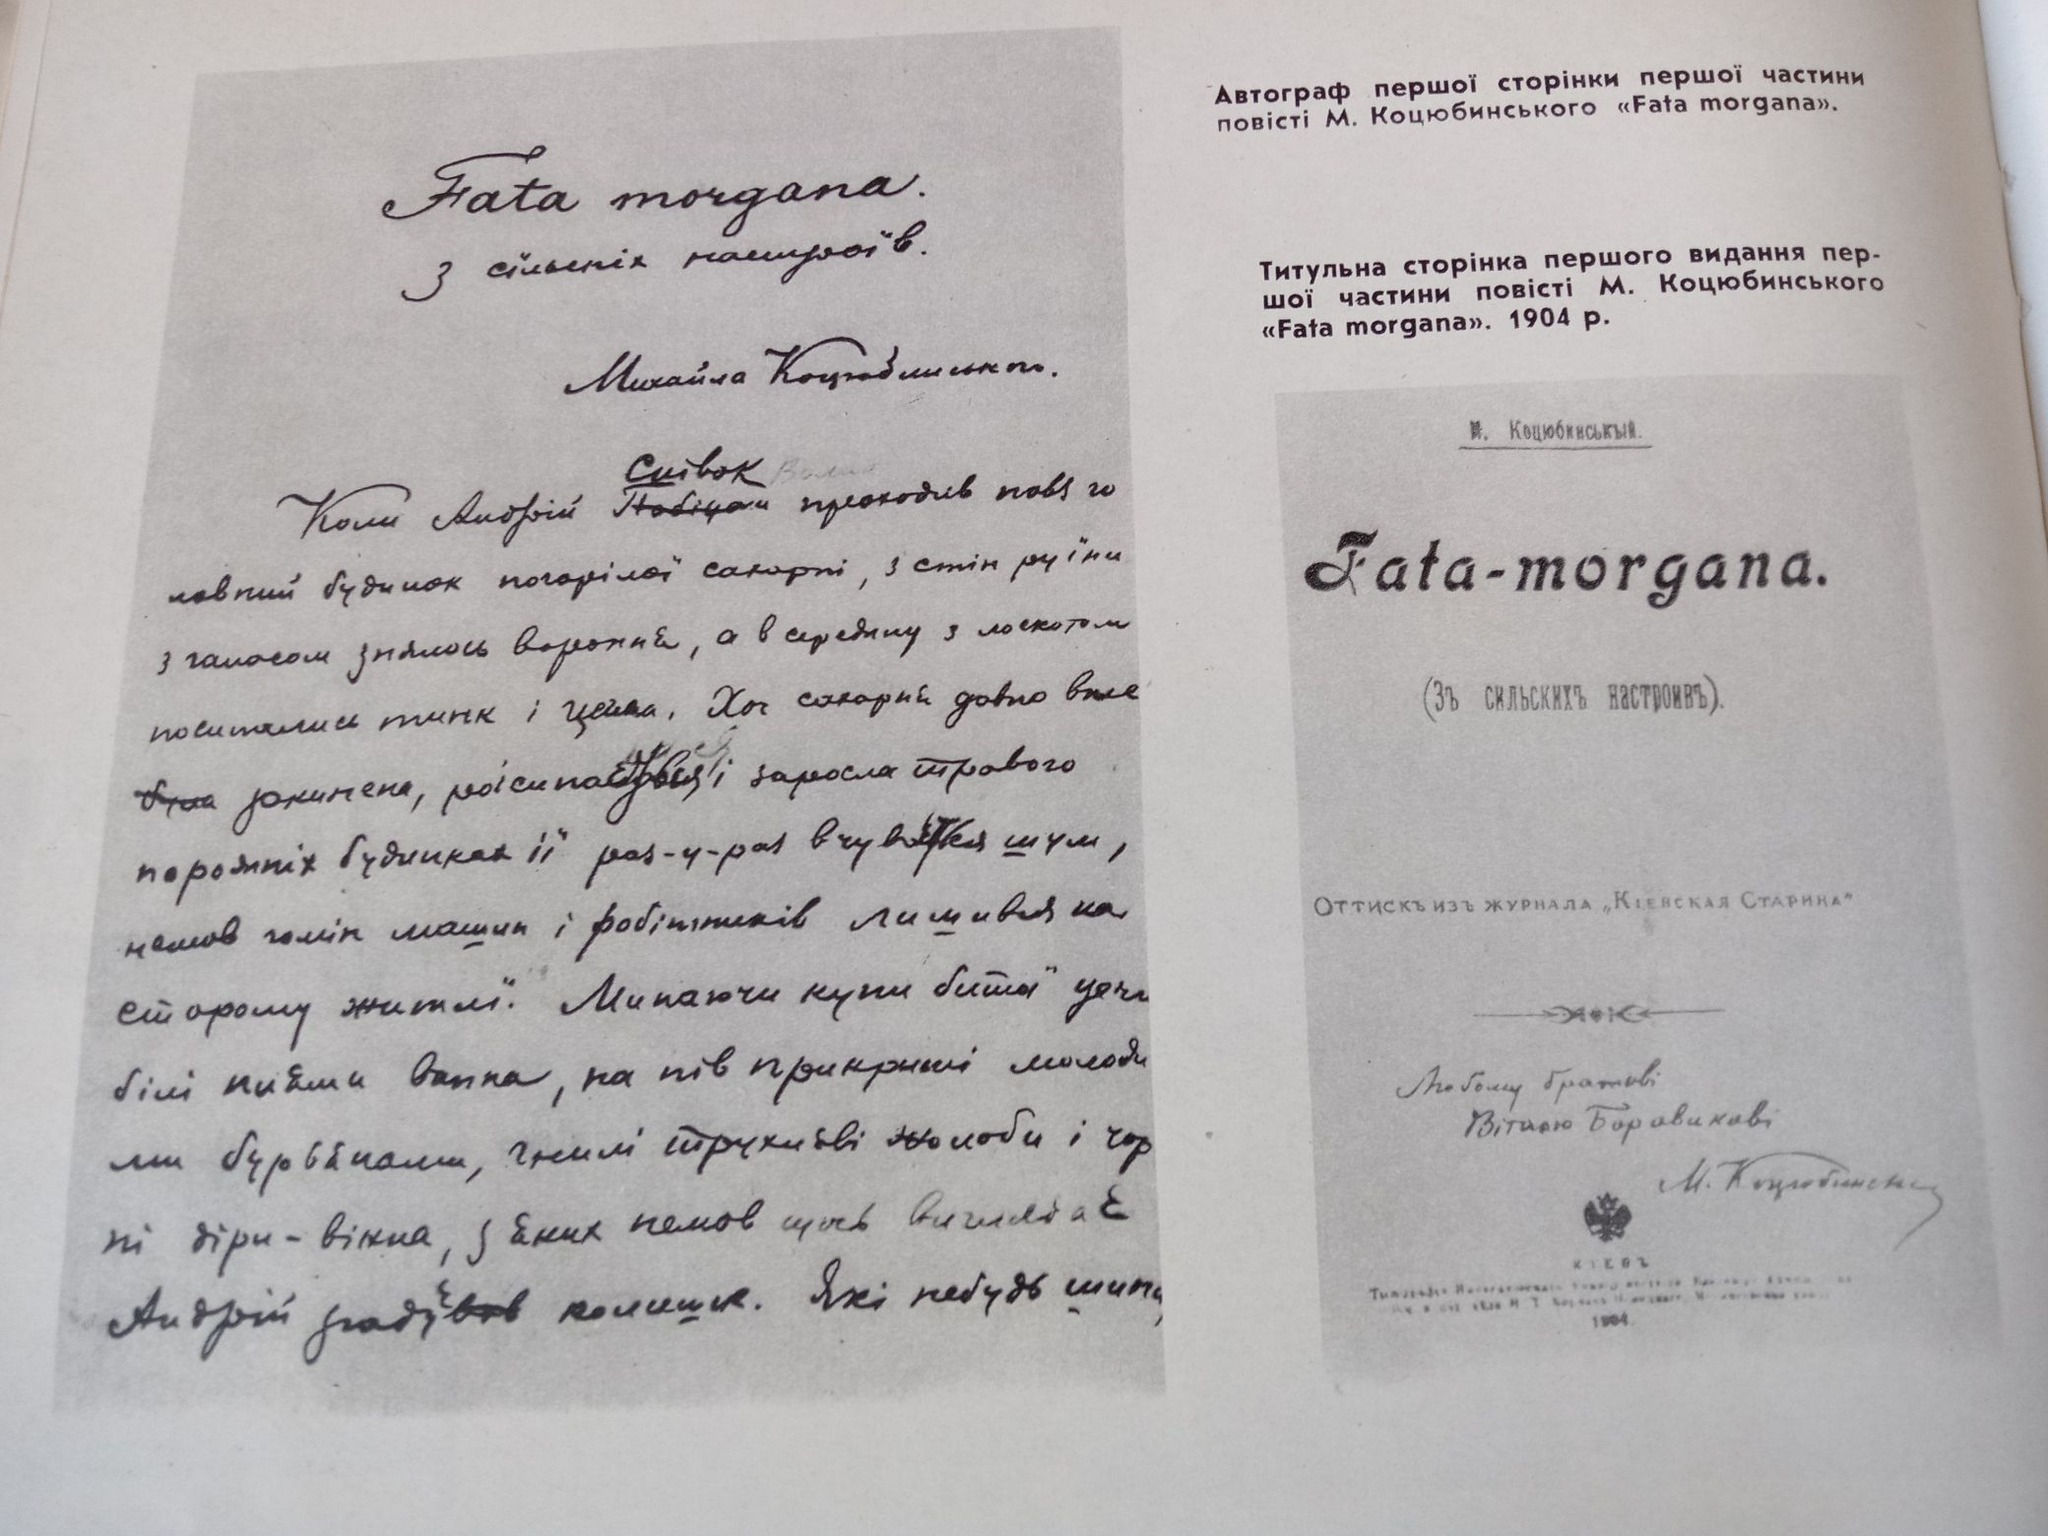 Fata morgana.
з сільських настроїв.
Михайла Коцюбинського.
Співок
Коли Андрій прозодив повз го
ловний будинок погорілої сахарні, з стін руїни
з галасом знялось вороннє, а в середину з лоскотом
посипались тинк і цегла. Хоч сахарня давно вже
була закинена, і заросла травою
порожніх будинках її раз-у-раз вчувався шум,
немов гомін машин і робітників лишився на
старому життї. Минаючи купи битої цегли
білі плями вапна, на пів прикриті молоди
ми бурянами, гнилі жолоби і чор
ні діри-вікна, з яких немов щось виглядає
Андрій колишнє. Які небудь
Автограф першої сторінки першої частини
повісті М. Коцюбинського «Fata morgana».
Титульна сторінка першого видання пер-
шої частини повісті М. Коцюбинського
«Fata morgana». 1904 р.
М. Коцюбинськый.
Fata-morgana.
(Зъ сильскихъ настроивъ).
Оттискъ изъ журнала „Кіевская Старина"
Любому братові
Віталію Боровикові
М. Коцюбинськ
КІЕВЪ
1904.